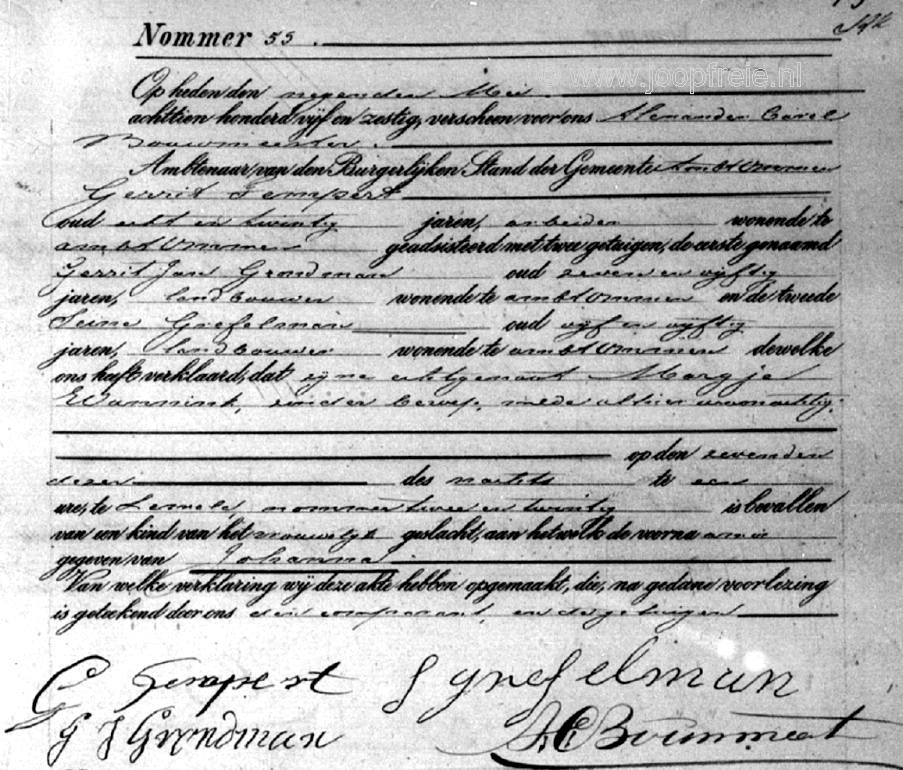 Nommer 55.
www.joopfreie.nl
Op heden den negenden Mei
achttien honderd vijf en zestig, verscheen voor ons Alexander Carel
Bouwmeester
Ambtenaar van den Burgerlijken Stand der Gemeente Ambt Ommen
Gerrit Tempert
oud acht en twintig jaren, arbeider wonende te
ambt Ommen geadsisteerd met twee getuigen, de eerste genaamd
Gerrit Jan Grondman oud zeven en vijftig
jaren, landbouwer wonende te ambt Ommen en de tweede
Seine Grefelman oud vijf en vijftig
jaren, landbouwer wonende te ambt Ommen dewelke
ons heeft verklaard, dat zijne echtgenoot Margje
Wannink, zonder beroep, mede aldaar woonachtig,
op den zevenden
dezer des nachts te een
ure, te Lemele nommer twee en twintig is bevallen
van een kind van het vrouwelijk geslacht, aan hetwelk de voorna am is
gegeven van Johanna.
Van welke verklaring wij deze akte hebben opgemaakt, die, na gedane voorlezing
is geteekend door ons den comparant, en de getuigen
G Tempert S Grefelman
G J Grondman A C Bouwmeest